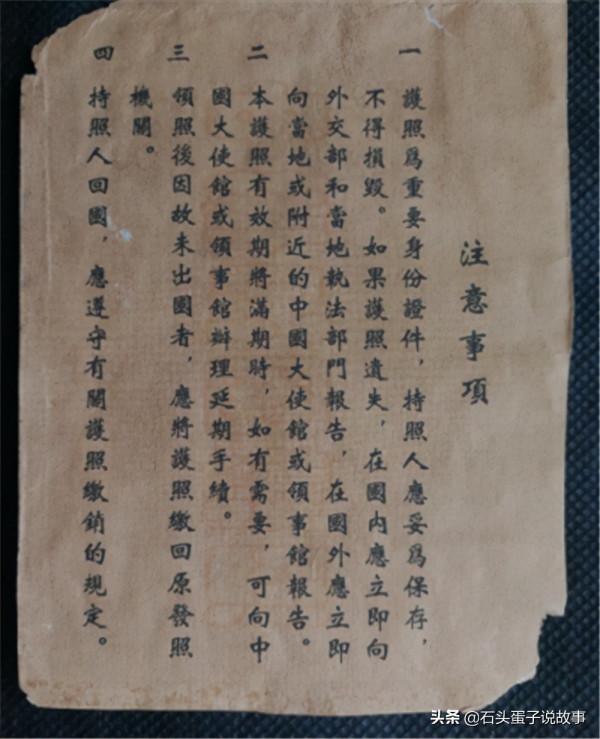 注意事項
一 護照爲重要身份證件，持照人應妥爲保存，
不得損毀。如果護照遺失，在國内應立即向
外交部和當地執法部門報告，在國外應立即
向當地或附近的中國大使館或領事館報告。
二 本護照有效期將滿期時，如有需要，可向中
國大使館或領事館辦理延期手續。
三 領照後因故未出國者，應將護照繳回原發照
機關。
四 持照人回國，應遵守有關護照繳銷的規定。
头条 @石头蛋子说故事